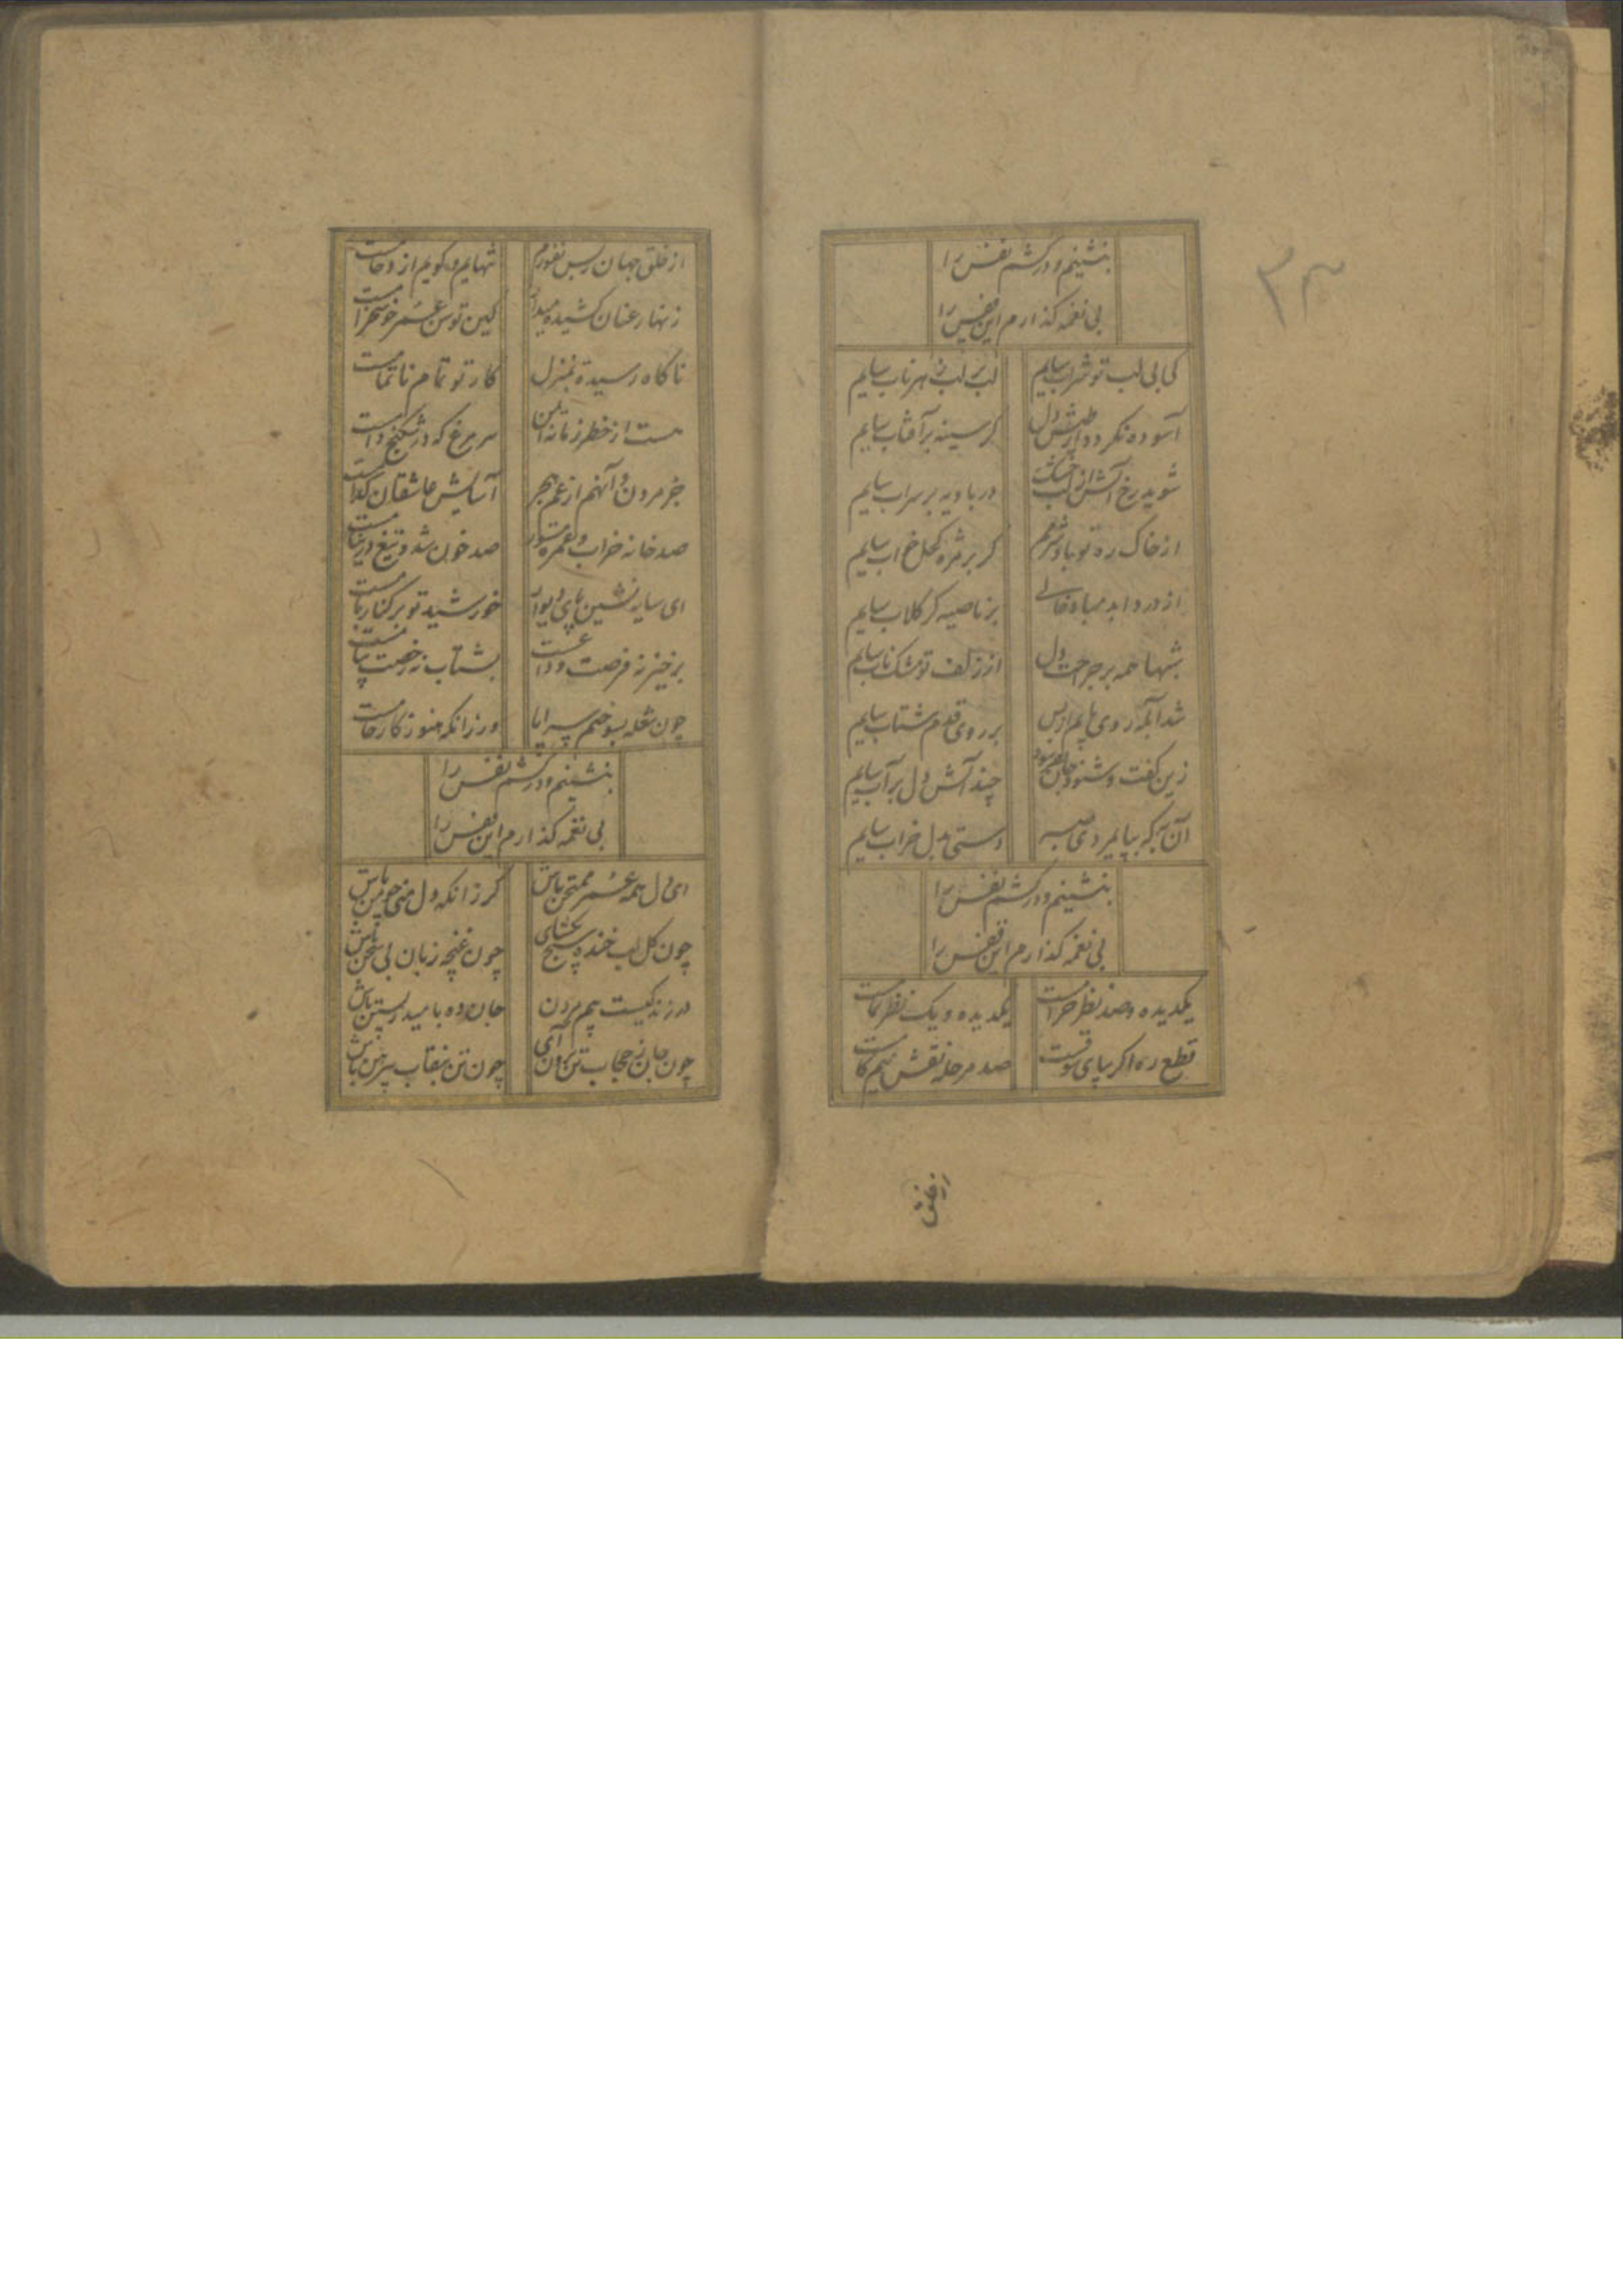 ۳۳
بنشینم و درکشم نفس را
بی نغمه گذارم این قفس را
کی بی لب تو شراب سایم
لب بر لب زهر ناب سایم
آسوده نگردد از طپش دل
گر سینه بر آفتاب سایم
شوید رخ آتش از لب خشک
در بادیه بر سراب سایم
از خاک ره تو باد شرمم
گر بر مژه کحل خواب سایم
از درد
بر ناصیه گر گلاب سایم
شبها همه بر جراحت دل
از زلف تو مشک ناب سایم
شد آبله روی پایم از بس
بر روی قدم شتاب سایم
زین گفت و شنود جان بفرسود
چند آتش دل بر آب سایم
آن به که بپایمردی صبر
دستی بدل خراب سایم
بنشینم و درکشم نفس را
بی نغمه گذارم این قفس را
یکدیده و صد نظر حرامست
یکدیده و یک نظر تمامست
قطع ره اگر بپای شوقست
صد مرحله نقش نیم گامست
از خلق
از خلق جهان ز بس نفورم
تنهایم و گویم ازدحامست
زنهار عنان کشیده میدار
کین توسن عمر خوشخرامست
ناگاه رسیدهٔ بمنزل
کار تو تمام ناتمامست
هست از خطر زمانه ایمن
هر مرغ که در شکنج دامست
جز مردن و آنهم از غم هجر
آسایش عاشقان کدامست
صد خانه خراب و غمزه مستور
صد خون شد و تیغ در نیامست
ای سایه نشین پای دیوار
خورشید تو بر کنار بامست
برخیز نه فرصت وداعست
بشتاب نه رخصت پیامست
چون شعله بسوختم سراپا
ور زانکه هنوز کار خامست
بنشینم و درکشم نفس را
بی نغمه گذارم این قفس را
ای دل همه عمر ممتحن باش
گر زانکه دل منی چو من باش
چون گل لب خنده هیچ مگشای
چون غنچه زبان بی سخن باش
در زندگیست بیم مردن
جان ده بامید زیستن باش
چون جان ز حجاب تن برون آی
چون تن بنقاب پیرهن باش